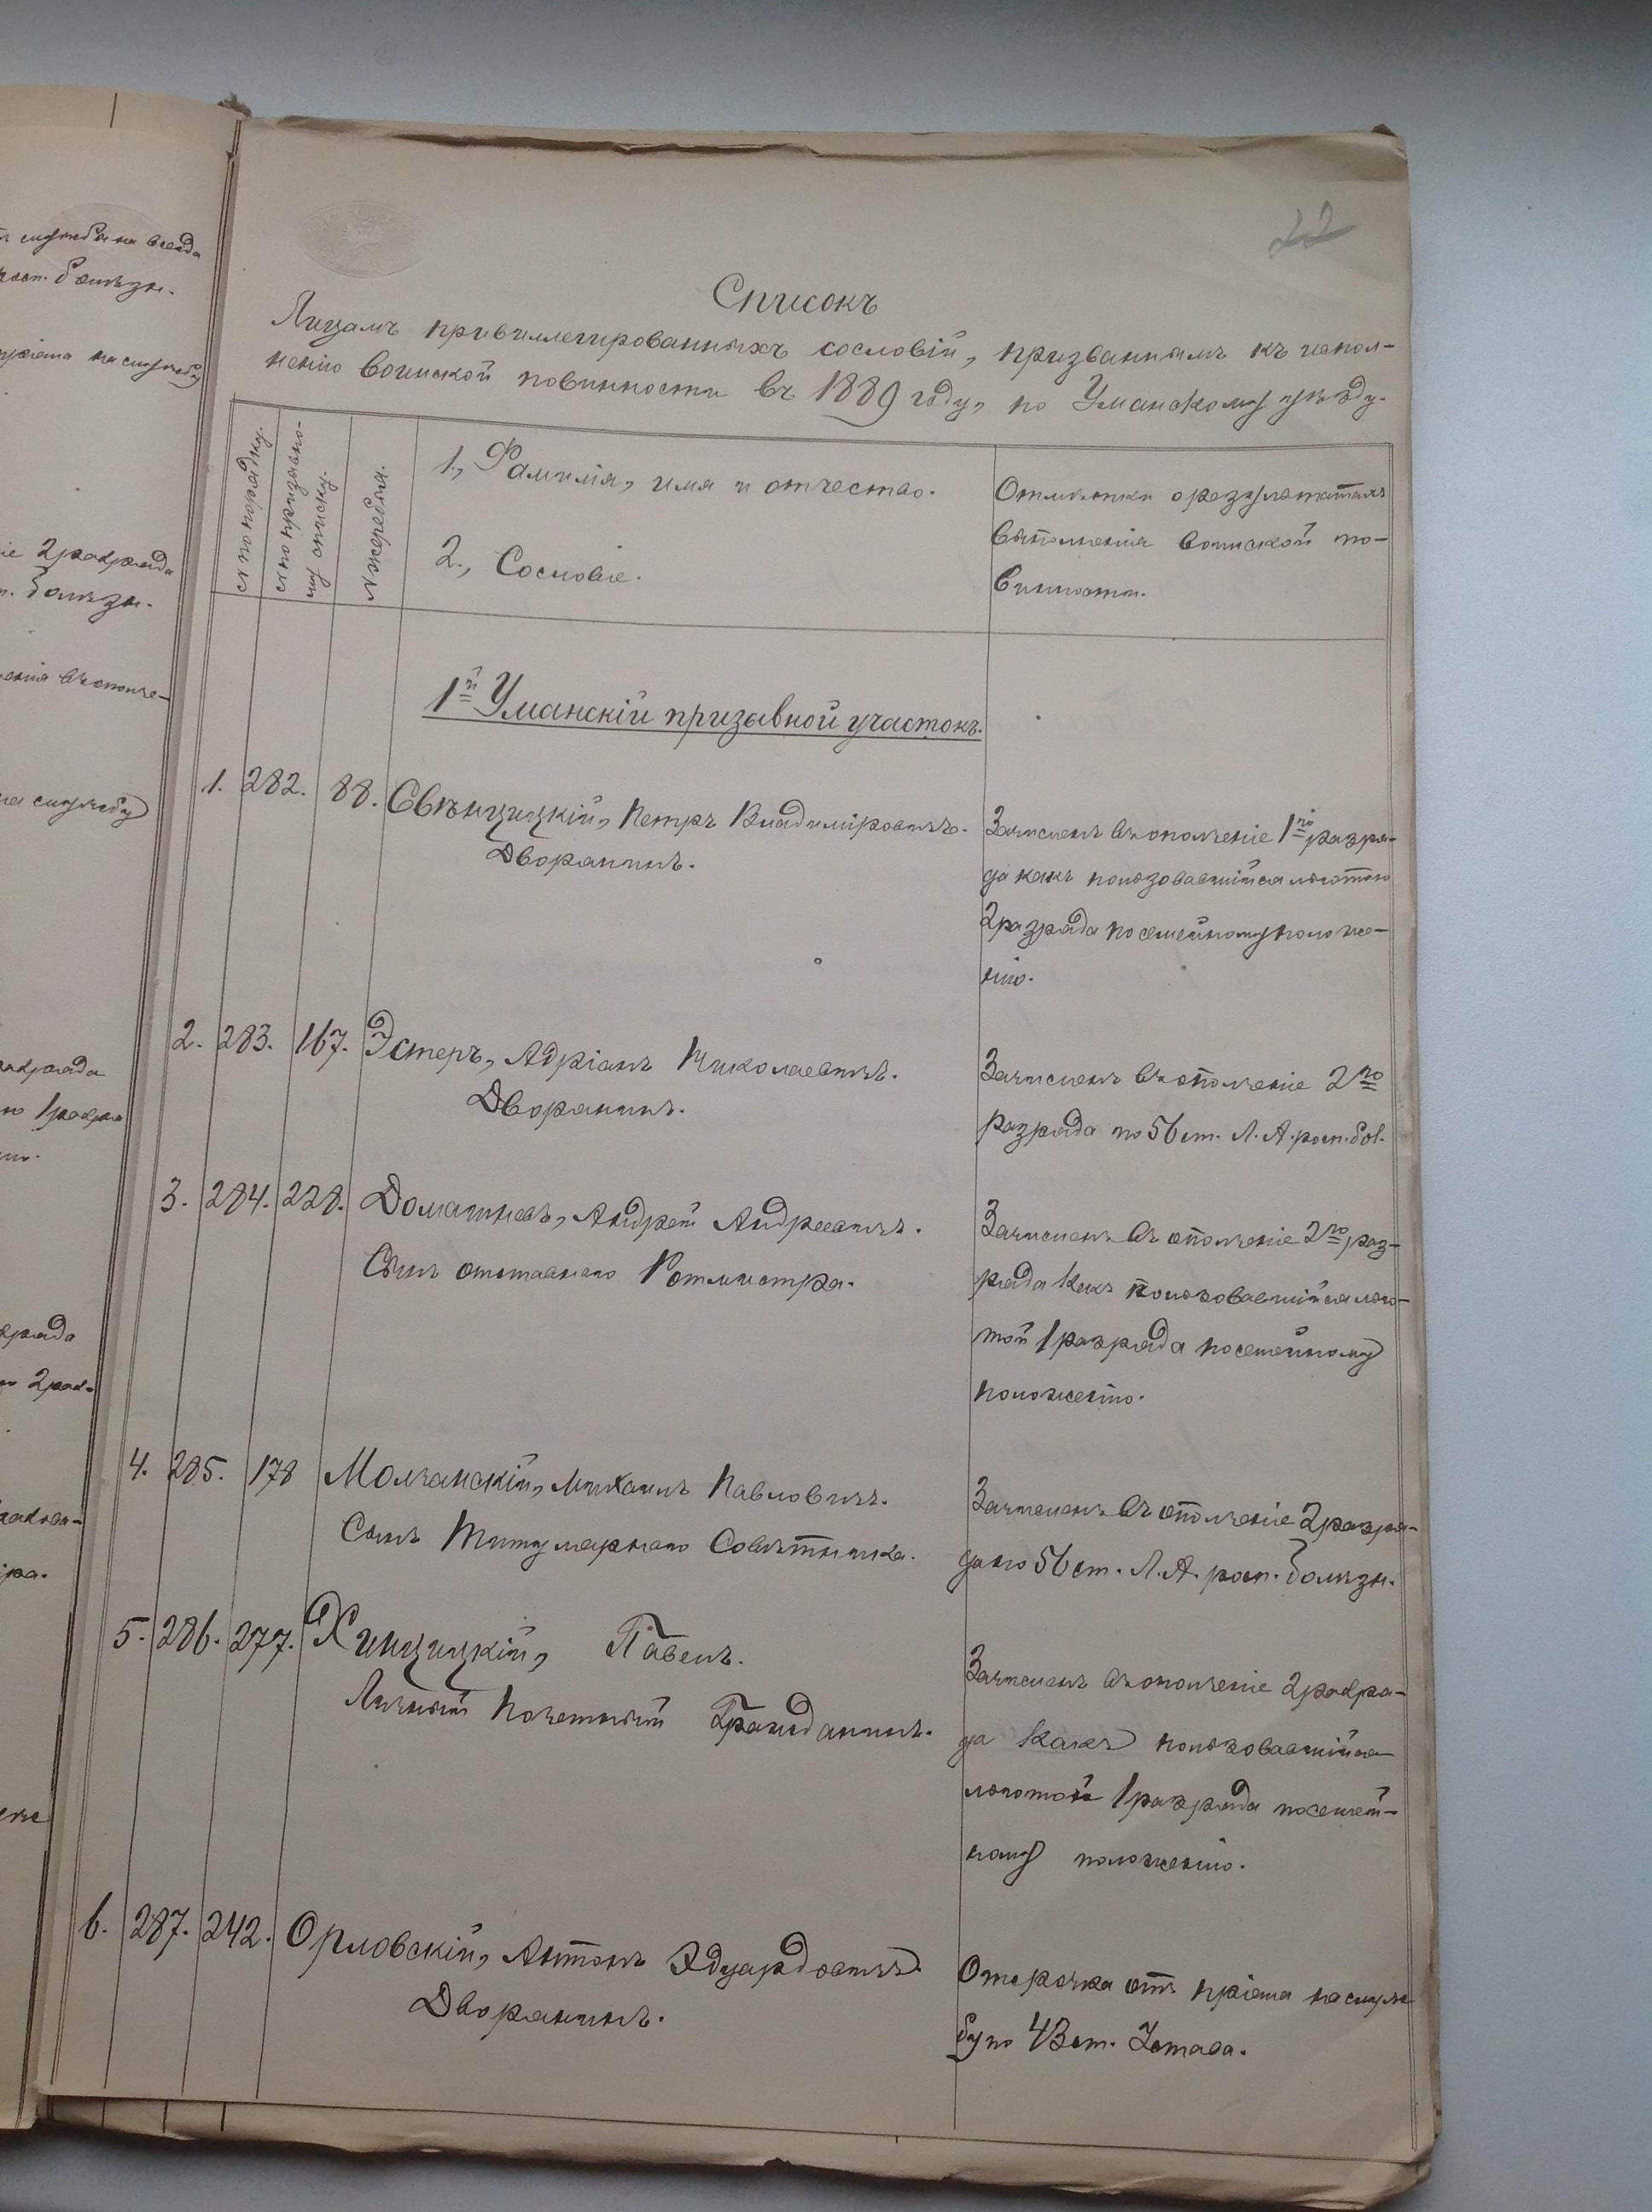 22
Списокъ
Лицамъ привиллегированныхъ сословій, призваннымъ къ испол-
ненію воинской повинности въ 1889 году, по Уманскому уѣзду.
№ по порядку.
№ по призывно-
му списку.
№ жеребья.
1., Фамилія, имя и отчество.
2., Сословіе.
Отмѣтки о результатахъ
выполненія воинской по-
винности.
1й Уманскій призывной участокъ.
1. 282. 88. Свѣнцицкій, Петръ Владиміровичъ.
Дворянинъ.
Зачисленъ въ ополченіе 1го разря-
да какъ пользовавшійся льготою
2 разряда по семейному положе-
нію.
2. 283. 167. Эстеръ, Адріанъ Николаевичъ.
Дворянинъ.
Зачисленъ въ ополченіе 2го
разряда по 56 ст. Л. А. росп. бол.
3. 284. 228. Домашневъ, Андрей Андреевичъ.
Сынъ отставнаго Ротмистра.
Зачисленъ въ ополченіе 2го раз-
ряда какъ пользовавшійся льго-
той 1 разряда по семейному
положенію.
4. 285. 178 Молчанскій, Михаилъ Павловичъ.
Сынъ Титулярнаго Совѣтника.
Зачисленъ въ ополченіе 2 разря-
да по 56 ст. Л. А. росп. болѣзн.
5. 286. 277. Хинцицкій, Павелъ.
Личный Почетный Гражданинъ.
Зачисленъ въ ополченіе 2 разря-
да какъ пользовавшійся
льготой 1 разряда по семей-
ному положенію.
6. 287. 242. Орловскій, Антонъ Эдуардовичъ.
Дворянинъ.
Отсрочка отъ пріема на служ-
бу по 43 ст. Устава.